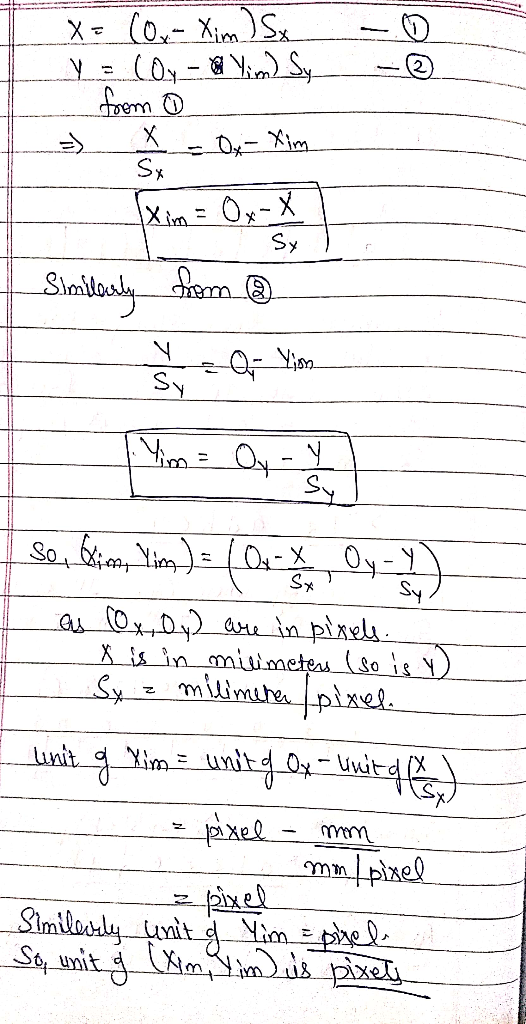 X = (Ox - Xim) Sx — ①
Y = (Oy - Yim) Sy — ②
from ①
⇒ X/Sx = Ox - Xim
Xim = Ox - X/Sx
Similarly from ②
Y/Sy = Oy - Yim
Yim = Oy - Y/Sy
So, (Xim, Yim) = (Ox - X/Sx, Oy - Y/Sy)
as (Ox, Oy) are in pixels.
X is in milimeters (so is Y)
Sx = milimeter / pixel.
unit of Xim = unit of Ox - unit of (X/Sx)
= pixel - mm / mm/pixel
= pixel
Similarly unit of Yim = pixel.
So, unit of (Xim, Yim) is pixels